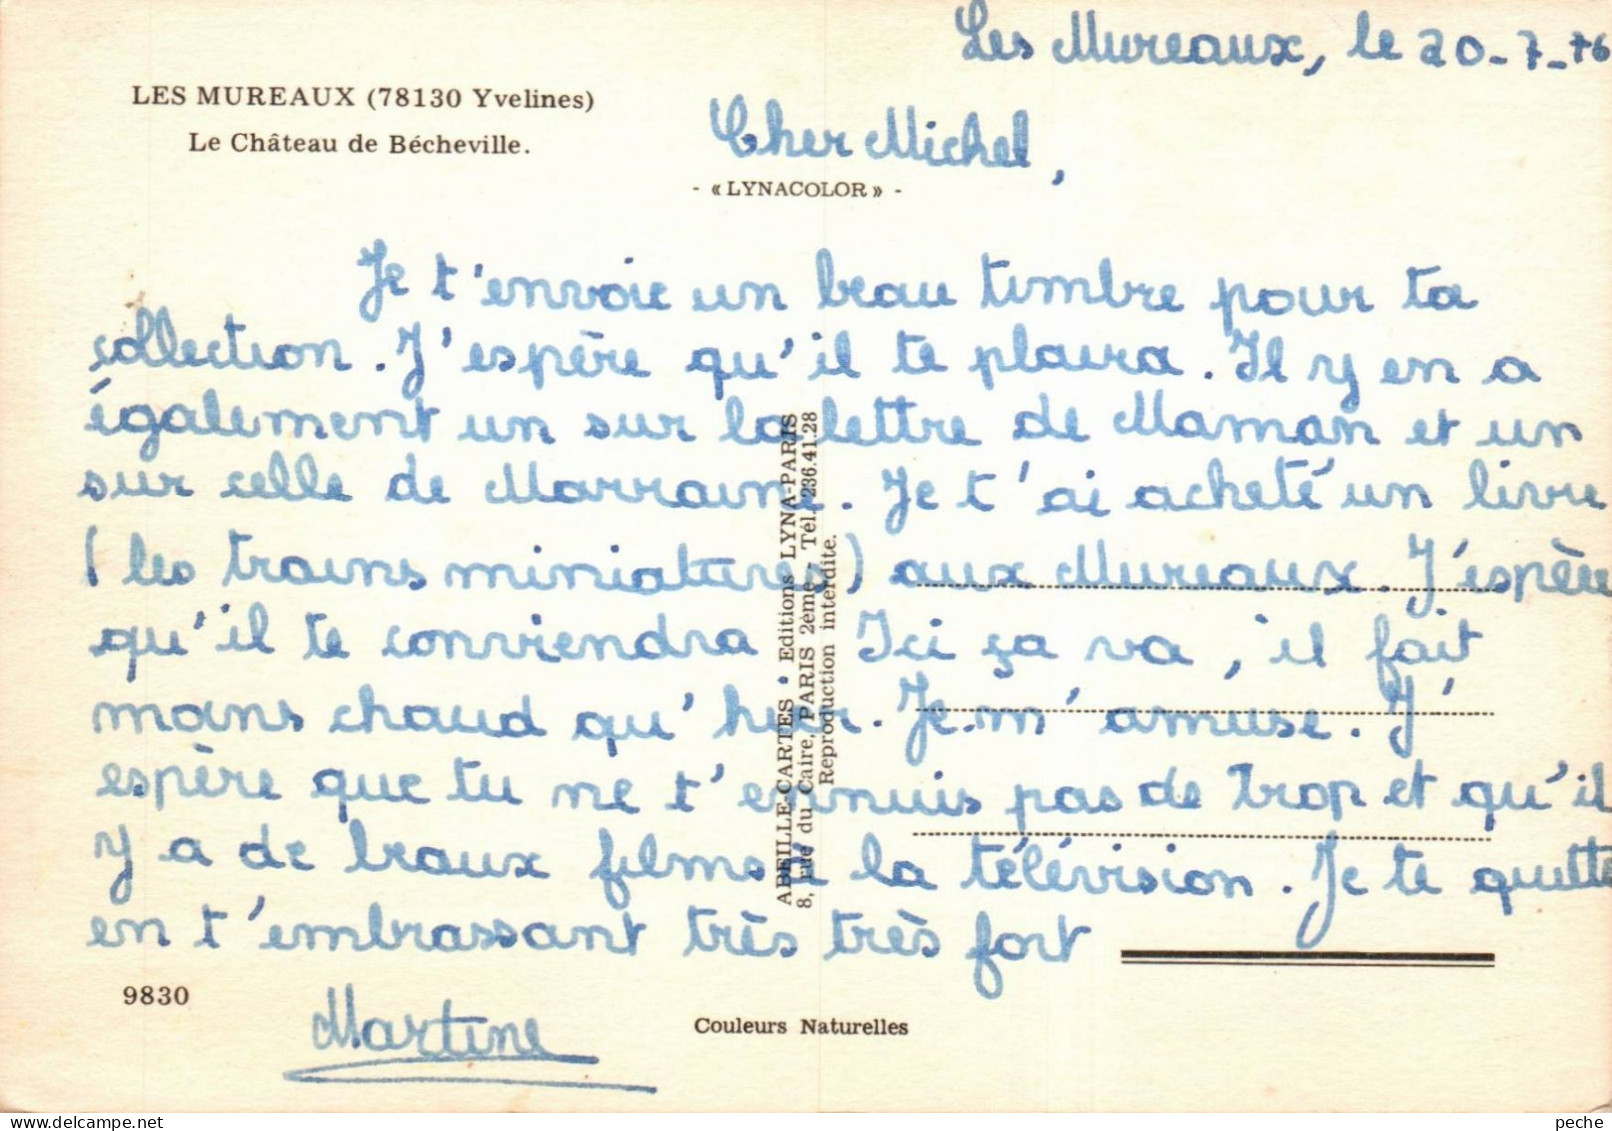 Les Mureaux, le 20-7-76
LES MUREAUX (78130 Yvelines)
Le Château de Bécheville.
Cher Michel,
- «LYNACOLOR» -
Je t'envoie un beau timbre pour ta
collection. J'espère qu'il te plaira. Il y en a
également un sur la lettre de Maman et un
sur celle de Marraine. Je t'ai acheté un livre
(les trains miniatures) aux Mureaux. J'espère
qu'il te conviendra. Ici ça va, il fait
mans chaud qu'hier. Je m'amuse. J'
espère que tu ne t'ennuis pas de trop et qu'il
y a de beaux films à la télévision. Je te quitte
en t'embrassant très très fort
Martine
ABEILLE-CARTES - Editions LYNA-PARIS
8, rue du Caire, PARIS 2ème - Tél. 236.41.28
Reproduction interdite.
9830
Couleurs Naturelles
peche